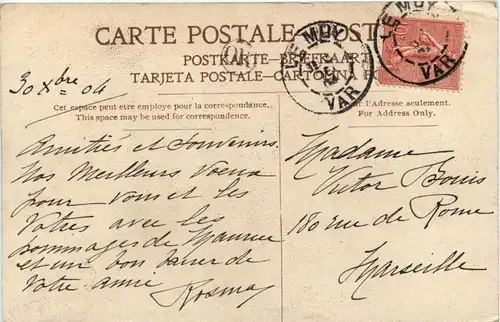 CARTE POSTALE
POSTKARTE
TARJETA POSTAL
Cet espace peut être employe pour la correspondance.
This space may be used for correspondence.
l'Adresse seulement.
For Address Only.
LE MUY
VAR
LE MUY
VAR
10
30 Xbre 04
Amitiés et Souvenirs
Nos Meilleurs Voeux
pour vous et les
Votres avec les
hommages de Maurice
et un bon baiser de
Votre amie
Madame
Victor Bouis
180 rue de Rome
Marseille